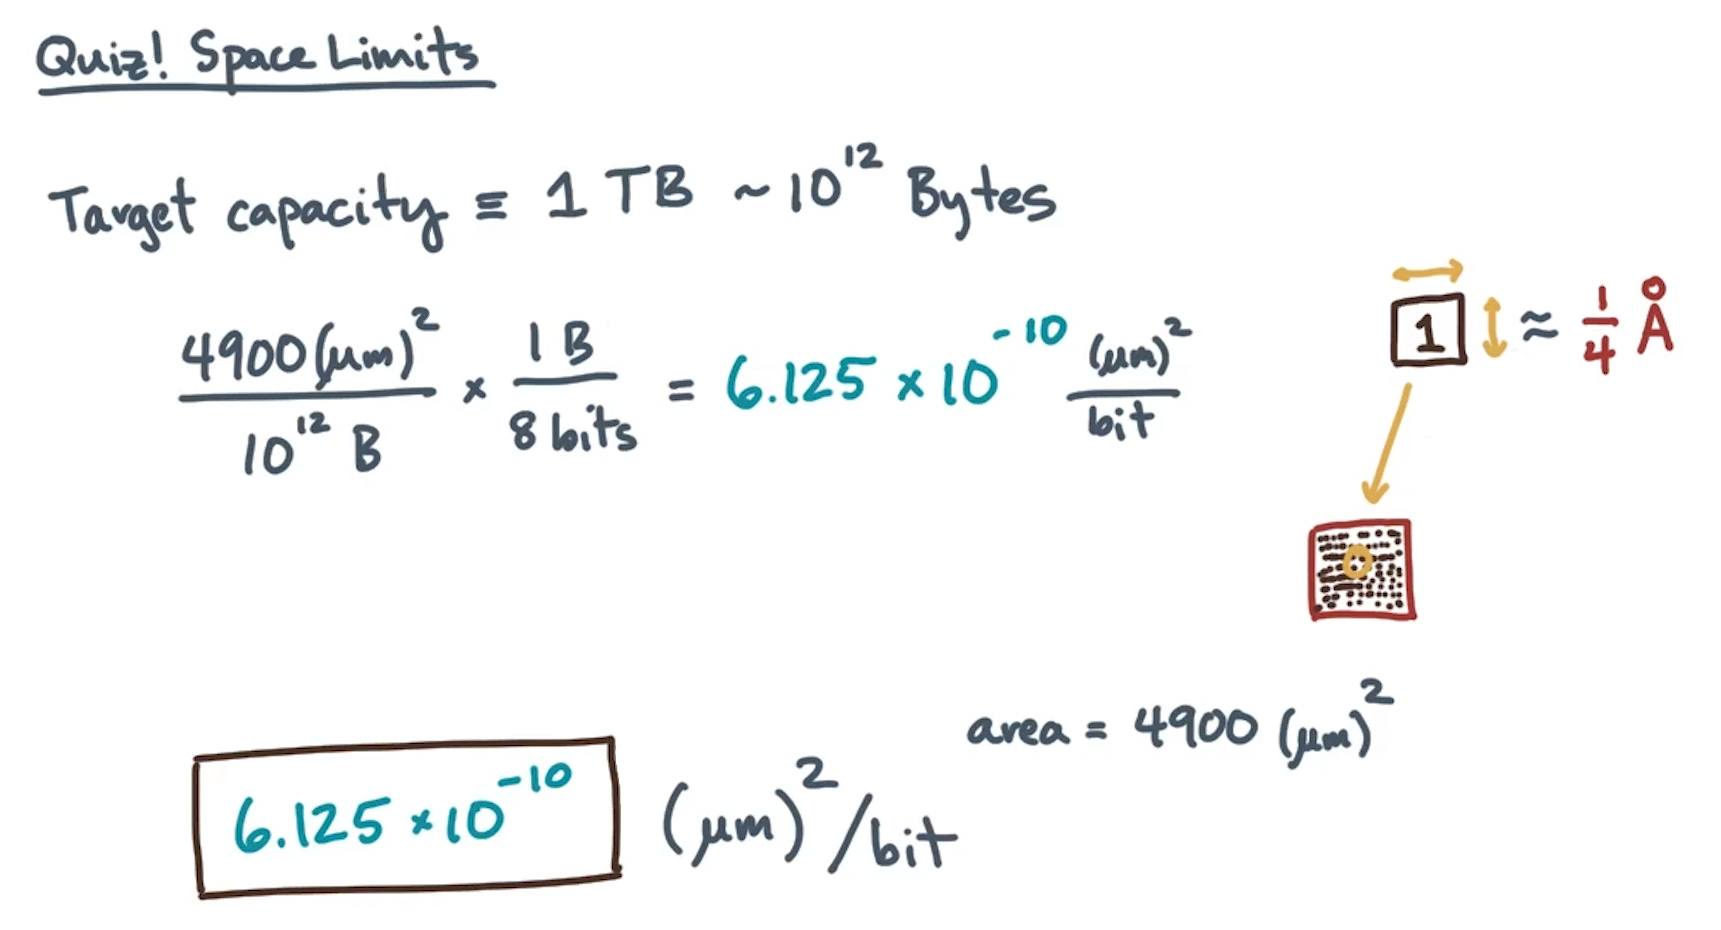 Quiz! Space Limits
Target capacity ≡ 1 TB ~ 10^12 Bytes
4900 (μm)^2 / 10^12 B × 1 B / 8 bits = 6.125 × 10^-10 (μm)^2 / bit
1 ≈ 1/4 Å
area = 4900 (μm)^2
6.125 × 10^-10 (μm)^2/bit